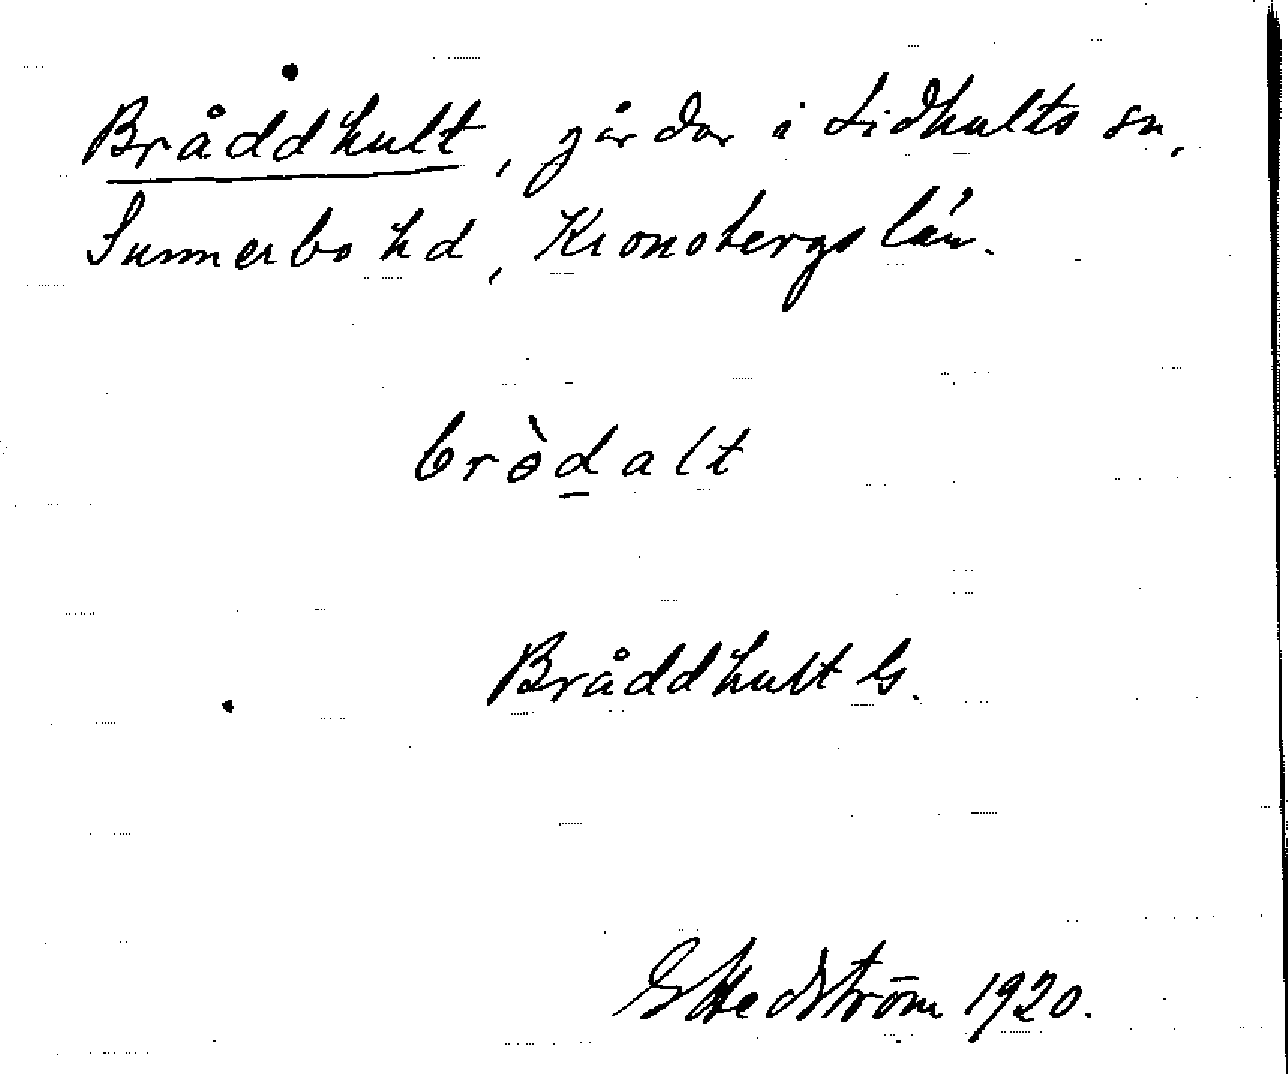 Bråddhult, gårdar i Lidhults sn,
Sunnerbo hd, Kronobergs län.
bròd̲alt
Bråddhult G.
G Hedström 1920.